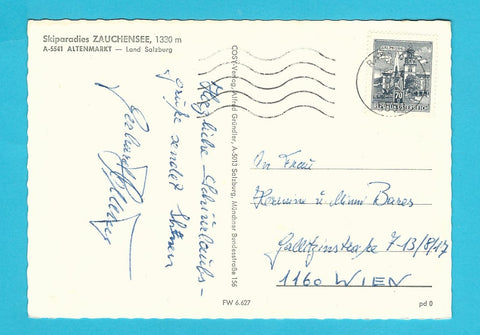 Skiparadies ZAUCHENSEE, 1330 m
A-5541 ALTENMARKT — Land Salzburg
Herzliche Schiurlaubs-
grüße sendet Ihnen
COSY-Verlag, Alfred Gründler, A-5013 Salzburg, Münchner Bundesstraße 156
An Frau
Hermine u. Minni Bares
Gallitzinstraße 7-13/8/17
1160 WIEN
FW 6.627
pd 0